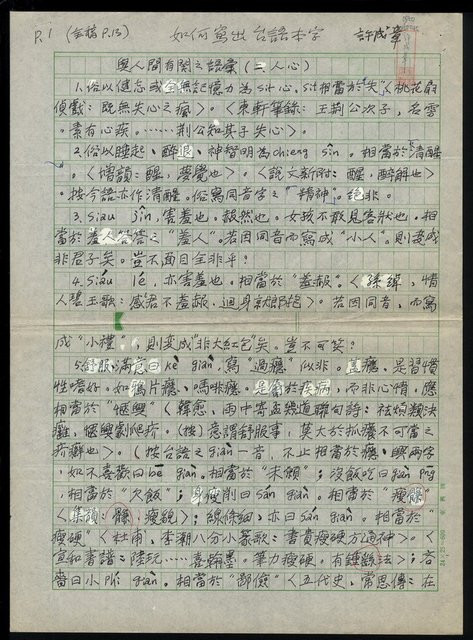 P.1 (全稿P.13) 如何寫出台語本字 許成章
與人間有關之語彙(二、人心)
1.俗以健忘或全無記憶力為sit心,sit相當於"失"。《桃花扇
偵戲:既無失心之瘋》。《東軒筆錄:王荊公次子,名雱
。素有心疾。……荊公知其子失心》。
2.俗以睡起、醉退,神智明為chieng sîn。相當於"清醒"
。《增韻:醒,夢覺也》。《說文新附:醒,醉解也》
。按今語亦作清醒。俗寫同音字之"精神"。絕非。
3.siáu jîn,害羞也。赧然也。女孩不敢見客狀也。相
當於羞人答答之"羞人"。若因同音而寫成"小人"。則變成
非君子矣。豈不面目全非乎?
4.siáu lé,亦害羞也。相當於"羞赧"。《孫綽,情
人碧玉歌:感君不羞赧,迴身就郎抱》。若因同音,而寫
成"小禮",則变成"非大紅包"矣。豈不可笑?
5.舒服、滿意曰kè giàn,寫"過癮"似非。蓋癮,是習慣
性嗜好。如鴉片癮、嗎啡癮。是當於疾病,而非心情,應
相當於"愜興"《韓愈,雨中寄孟幾道聯句詩:祛煩類決
癰,愜興劇爬疥。(按)意謂舒服事,莫大於抓癢不可當之
疥癬也》。(按台語之giàn一音,不止相當於癮、興兩字
,如不喜歡曰bē giàn。相當於"未願";沒飯吃曰giàn pn̄g
,相當於"欠飯";身瘦削曰sán giàn。相當於"瘦
《集韻: ,瘦貌》;線條細,亦曰sán giàn。相當於"
瘦硬"《杜甫,李潮八分小篆歌:書貴瘦硬方通神》。《
宣和書譜:陸玩……喜翰墨。筆力瘦硬,有鍾 法》;吝
嗇曰小phí giàn。相當於"鄙儉"《五代史,常思傳:在
24×25=600